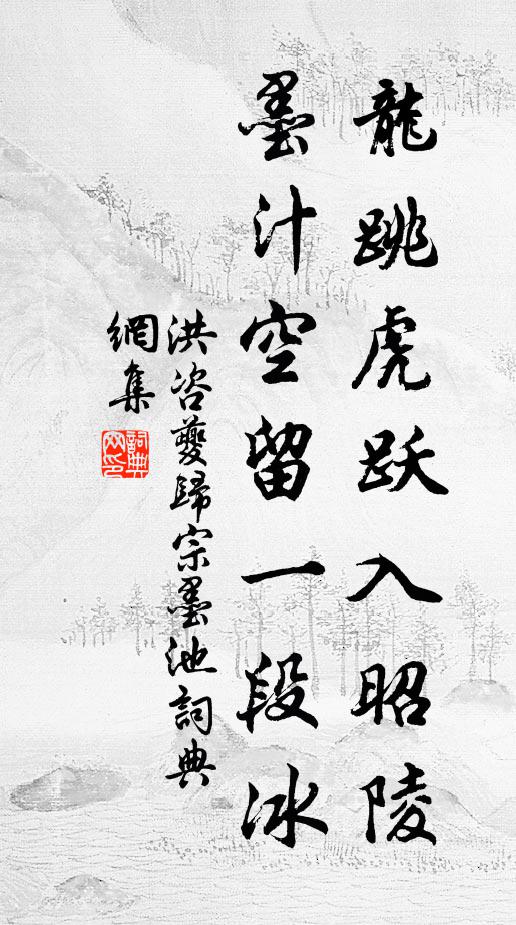 龍跳虎跃入昭陵
墨汁空留一段冰
洪咨夔歸宗墨池詞典
網集
詞典網印